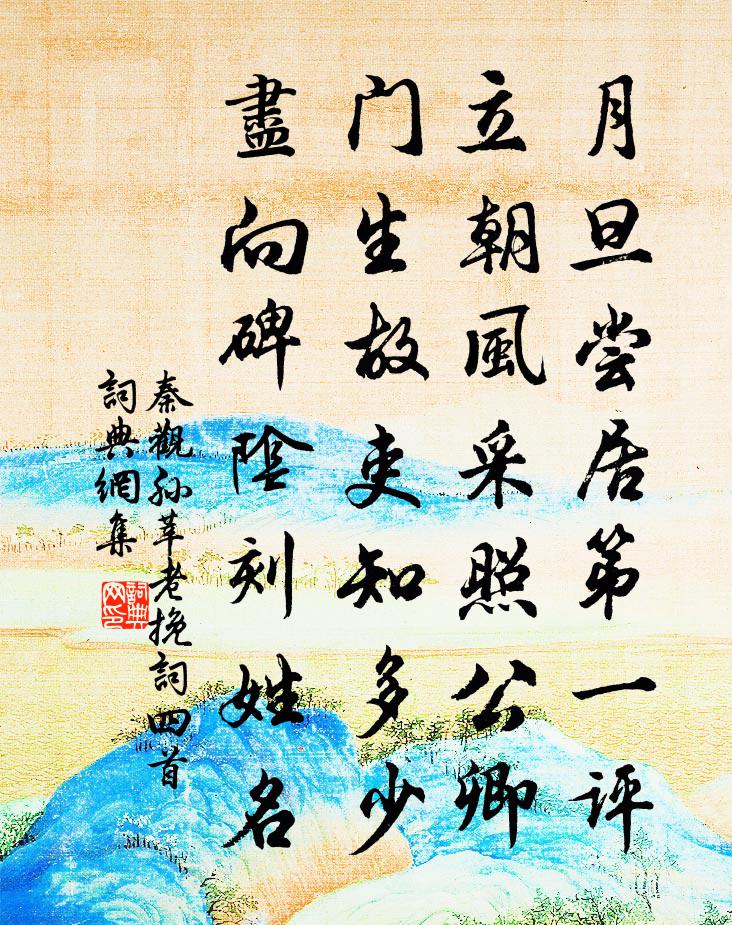 月旦尝居第一评
立朝風采照公卿
门生故吏知多少
盡向碑陰刻姓名
秦觀孙莘老挽詞四首
詞典網集
詞典
网印